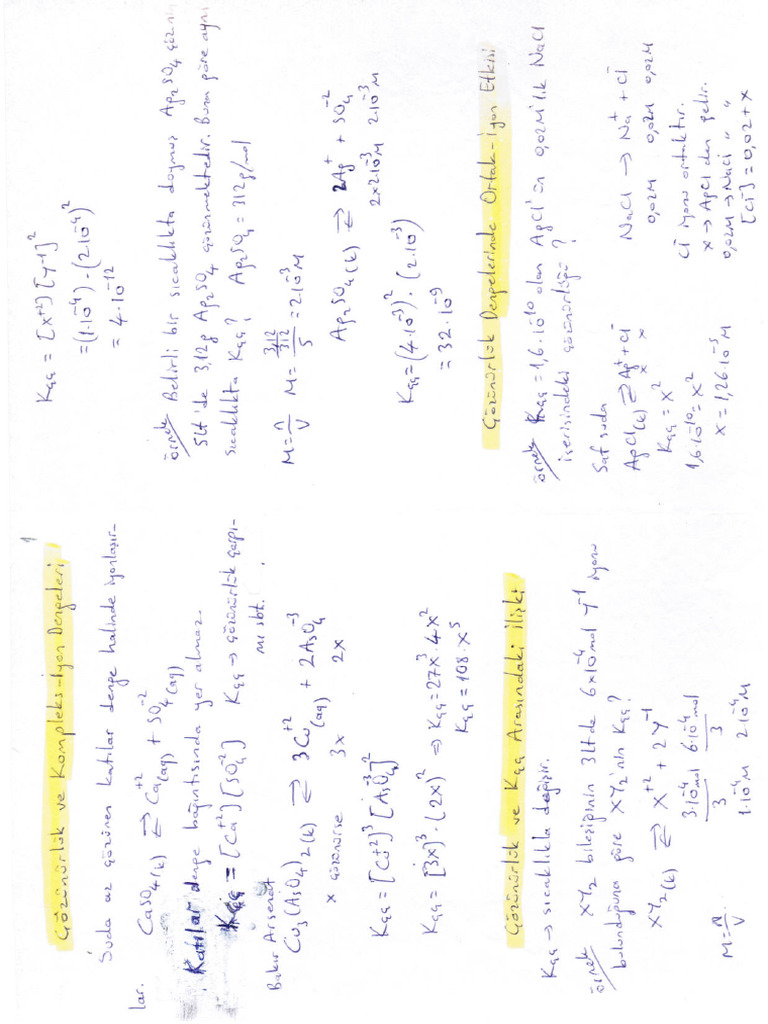 1
Çözünürlük ve Kompleks-İyon Dengeleri
Suda az çözünen katılar denge halinde iyonlaşır-
lar.
CaSO4(k) ⇌ Ca+2(aq) + SO4-2(aq)
Katılar denge bağıntısında yer almaz.
Kçç = [Ca+2][SO4-2] Kçç → çözünürlük çarpı-
mı sbt.
Bakır Arsenat
Cu3(AsO4)2(k) ⇌ 3Cu+2(aq) + 2AsO4-3
x çözünürse 3x 2x
Kçç = [Cu+2]3 [AsO4-3]2
Kçç = [3x)3 · (2x)2 ⇒ Kçç = 27x3 · 4x2
Kçç = 108 · x5
Çözünürlük ve Kçç Arasındaki İlişki
Kçç → sıcaklıkla değişir.
örnek XY2 bileşiğinin 3Lt'de 6x10-4 mol Y-1 iyonu
bulunduğuna göre XY2'nin Kçç?
XY2(k) ⇌ X+2 + 2Y-1
3·10-4mol 6·10-4mol
M=n/V 3 3
1·10-4M 2·10-4M
Kçç = [X+2][Y-1]2
=(1·10-4)·(2·10-4)2
= 4·10-12
örnek Belirli bir sıcaklıkta doymuş Ag2SO4
5Lt'de 3,12g Ag2SO4 çözünmektedir. Buna göre aynı
sıcaklıkta Kçç? Ag2SO4 = 312g/mol
M=n/V M= 3,12/312/5 = 2·10-3M
Ag2SO4(k) ⇌ 2Ag+ + SO4-2
2x2·10-3M 2·10-3M
Kçç=(4·10-3)2 · (2·10-3)
= 32·10-9
Çözünürlük Dengelerinde Ortak-İyon Etkisi
örnek Kçç = 1,6·10-10 olan AgCl'ün 0,02M'lık NaCl
içerisindeki çözünürlüğü?
Saf suda
AgCl(k) ⇌ Ag+ + Cl-
x x
Kçç = x2
1,6·10-10 = x2
x = 1,26·10-5M
NaCl → Na+ + Cl-
0,02M 0,02M 0,02M
Cl- iyonu ortaktır.
x → AgCl den gelir.
0,02M → NaCl " "
[Cl-] = 0,02 + x